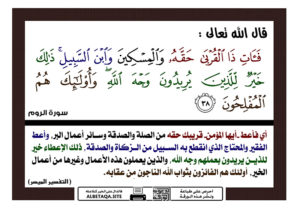 قال الله تعالى :
فَـَٔاتِ ذَا ٱلْقُرْبَىٰ حَقَّهُۥ وَٱلْمِسْكِينَ وَٱبْنَ ٱلسَّبِيلِۚ ذَٰلِكَ
خَيْرٌ لِّلَّذِينَ يُرِيدُونَ وَجْهَ ٱللَّهِۖ وَأُو۟لَٰٓئِكَ هُمُ
ٱلْمُفْلِحُونَ ٣٨
سورة الروم
أي فأعط -أيها المؤمن- قريبك حقه من الصلة والصدقة وسائر أعمال البر، وأعط
الفقير والمحتاج الذي انقطع به السبيل من الزكاة والصدقة، ذلك الإعطاء خير
للذين يريدون بعملهم وجه الله، والذين يعملون هذه الأعمال وغيرها من أعمال
الخير، أولئك هم الفائزون بثواب الله الناجون من عقابه.
(التفسير الميسر)
ALBETAQA.SITE